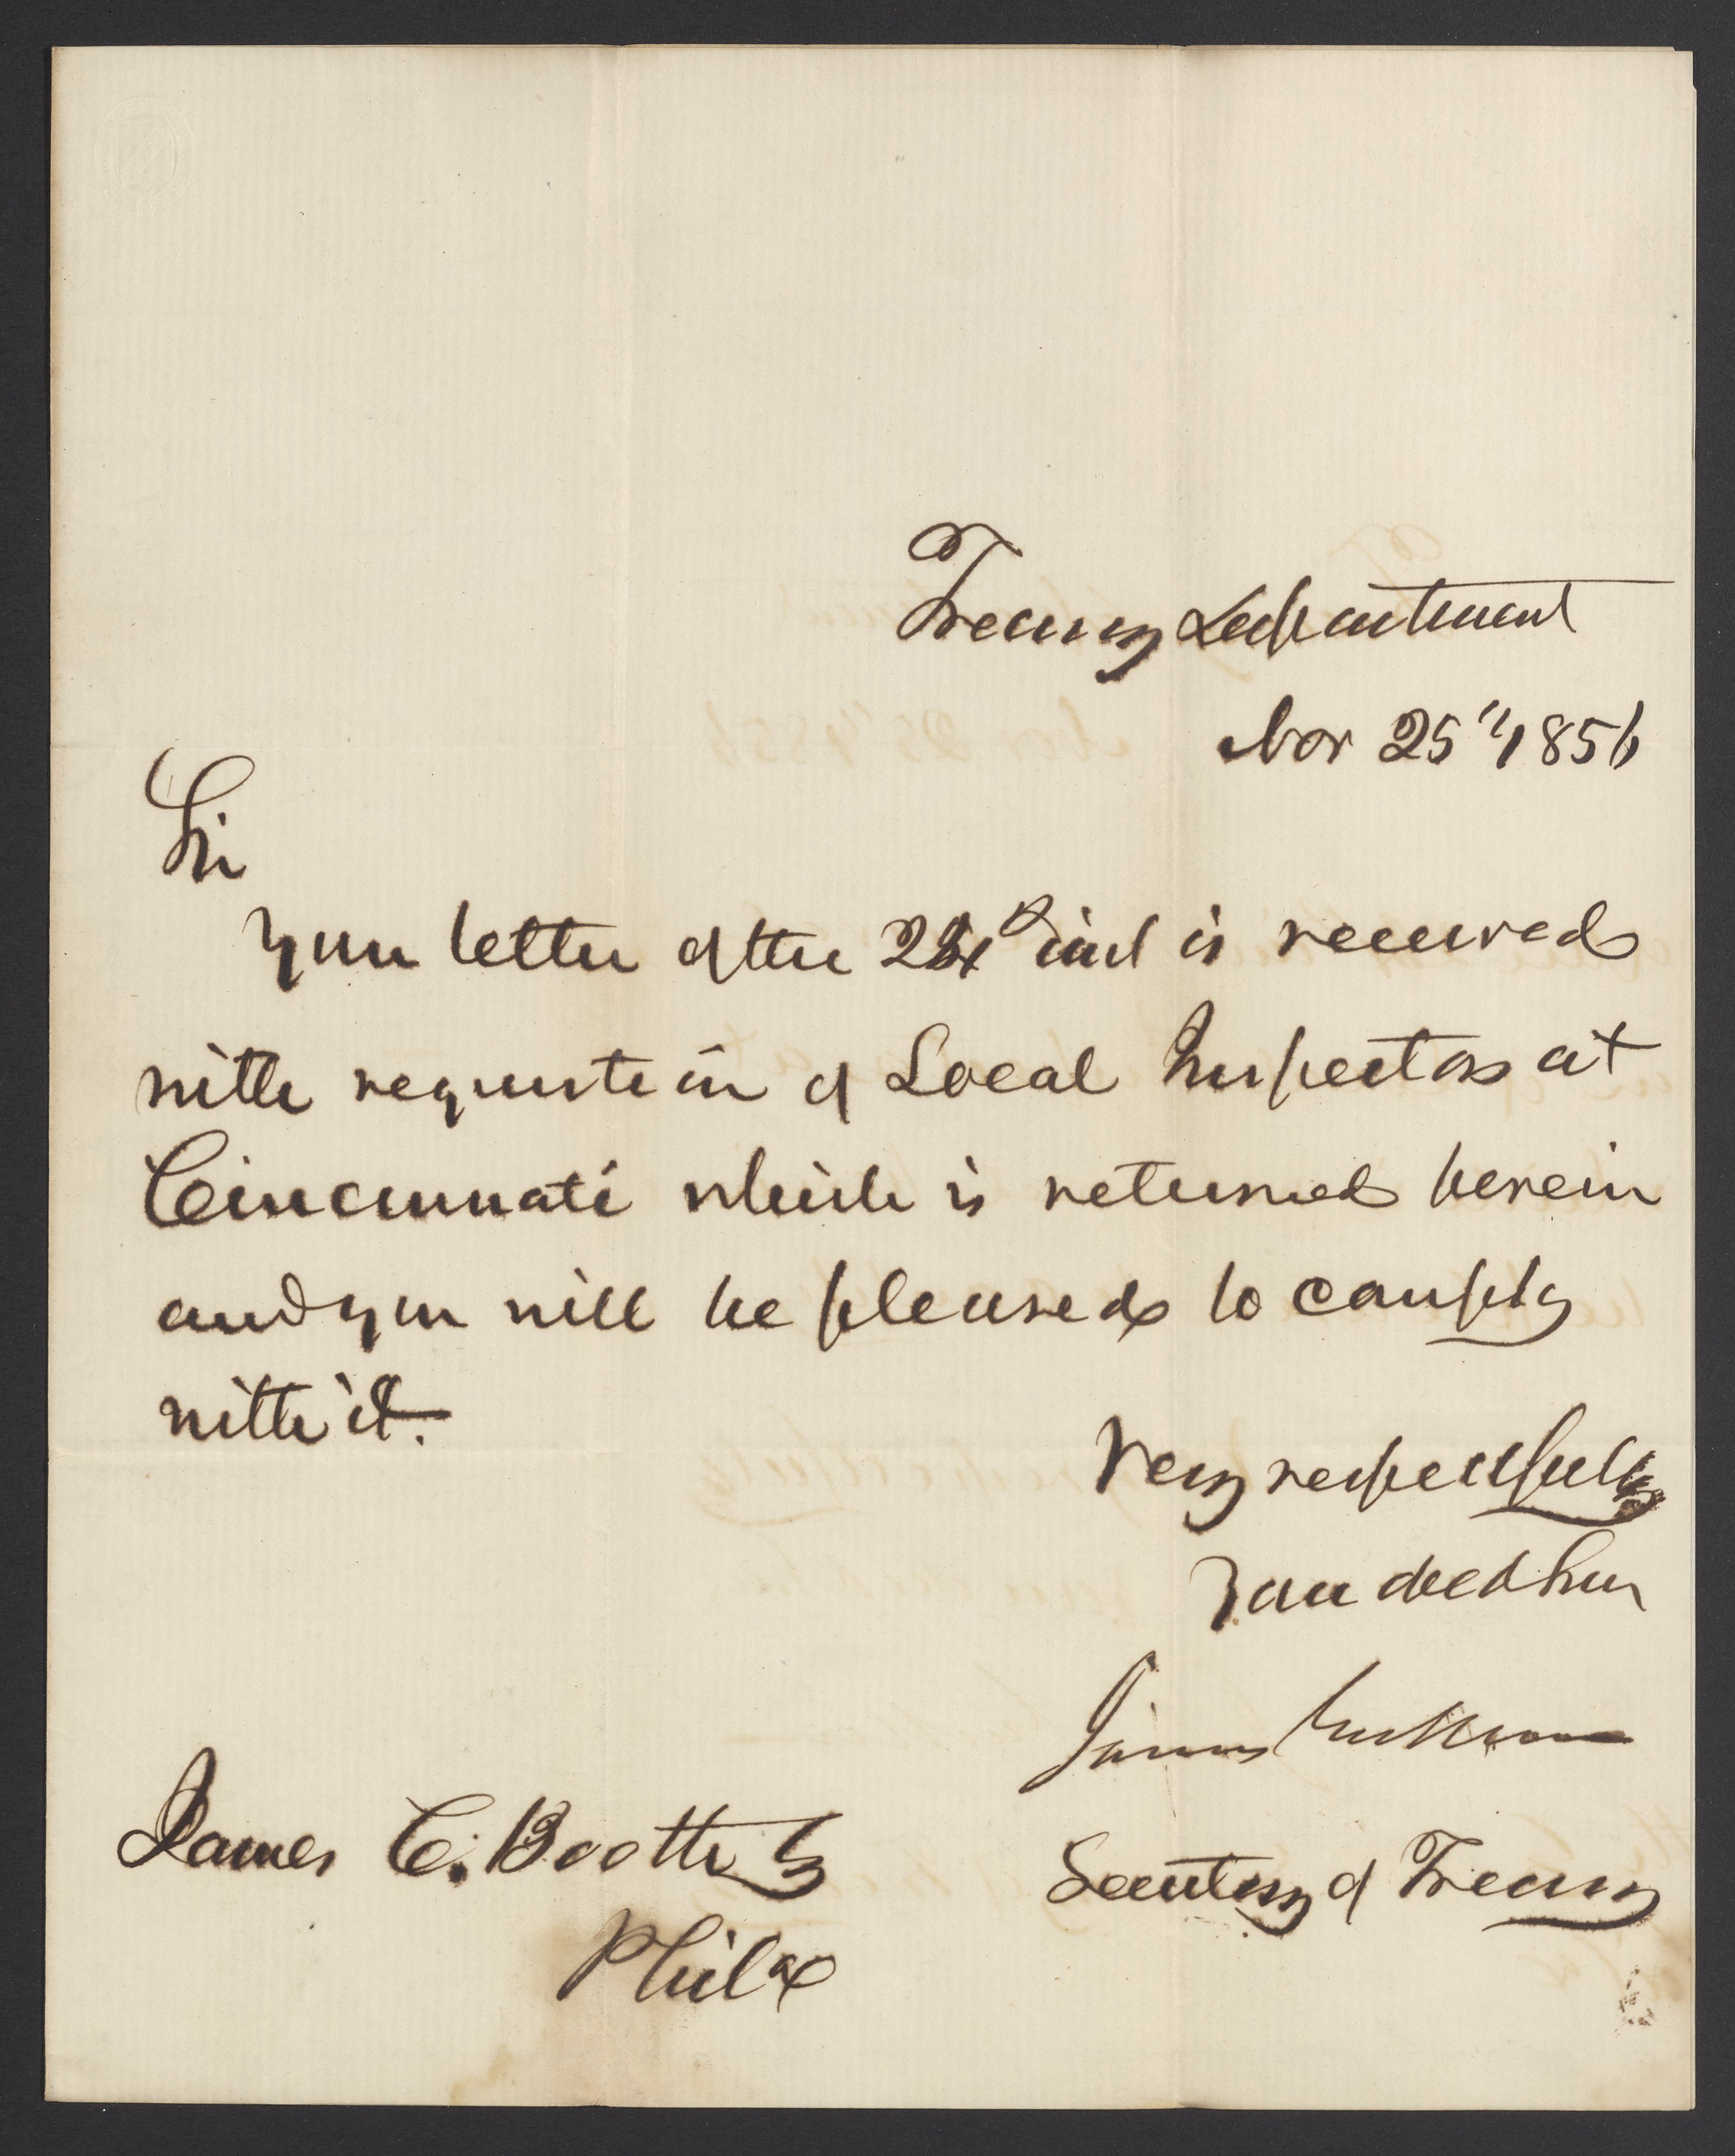 Treasury Department
Nov 25" 1856
Sir
Your letter of the 24th inst is received
with requisition of Local Inspectors at
Cincinnati which is returned herein
and you will be pleased to comply
with it.
Very respectfully
Your obed Serv
James Guthrie
Secretary of Treasury
James C. Booth Esq
Phila